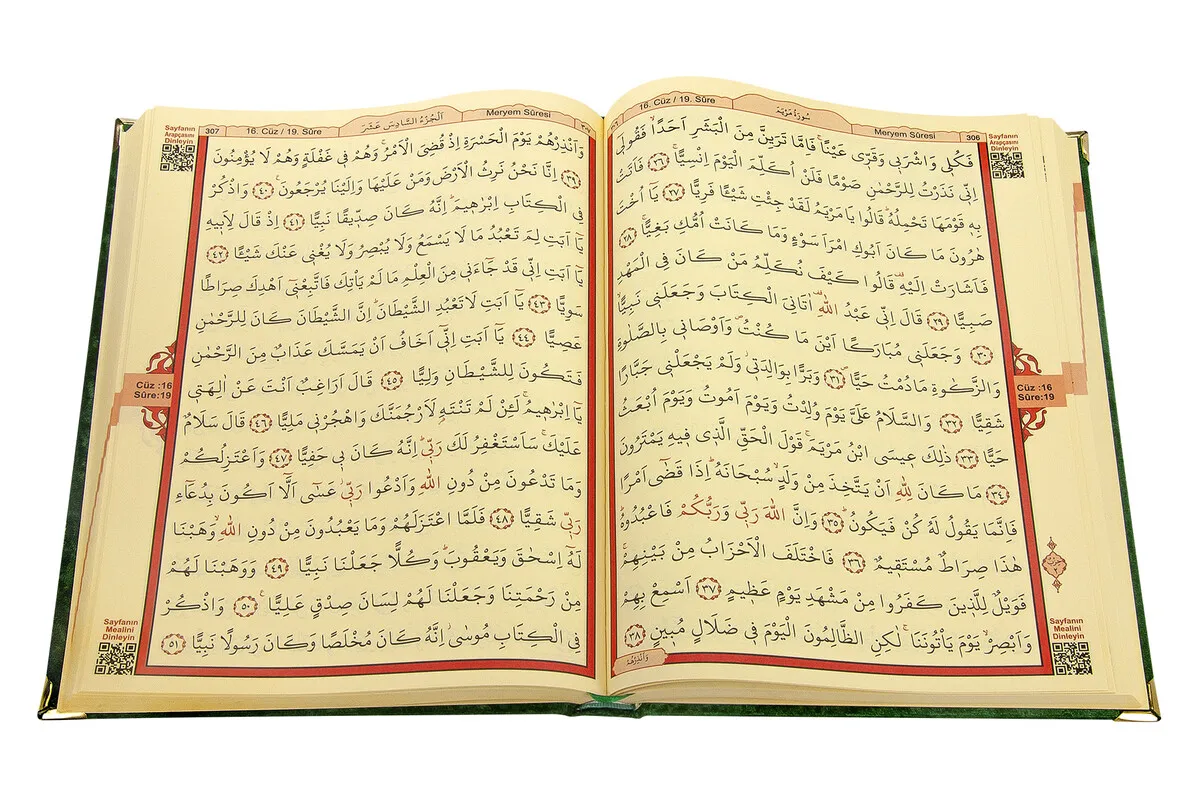 16. Cüz / 19. Sûre
سُورَةُ مَرْيَمَ
Meryem Sûresi
306
Sayfanın
Arapçasını
Dinleyin
فَكُلٖي وَاشْرَبٖي وَقَرّٖي عَيْنًاۚ فَاِمَّا تَرَيِنَّ مِنَ الْبَشَرِ اَحَدًاۙ فَقُولٖٓي
اِنّٖي نَذَرْتُ لِلرَّحْمٰنِ صَوْمًا فَلَنْ اُكَلِّمَ الْيَوْمَ اِنْسِيًّاۚ ﴿٢٦﴾ فَاَتَتْ
بِهٖ قَوْمَهَا تَحْمِلُهُؕ قَالُوا يَا مَرْيَمُ لَقَدْ جِئْتِ شَيْـًٔا فَرِيًّا ﴿٢٧﴾ يَٓا اُخْتَ
هٰرُونَ مَا كَانَ اَبُوكِ امْرَاَ سَوْءٍ وَمَا كَانَتْ اُمُّكِ بَغِيًّاۚ ﴿٢٨﴾
فَاَشَارَتْ اِلَيْهِؕ قَالُوا كَيْفَ نُكَلِّمُ مَنْ كَانَ فِي الْمَهْدِ
صَبِيًّا ﴿٢٩﴾ قَالَ اِنّٖي عَبْدُ اللّٰهِؕ اٰتَانِيَ الْكِتَابَ وَجَعَلَنٖي نَبِيًّاۙ
﴿٣٠﴾ وَجَعَلَنٖي مُبَارَكًا اَيْنَ مَا كُنْتُؕ وَاَوْصَانٖي بِالصَّلٰوةِ
وَالزَّكٰوةِ مَا دُمْتُ حَيًّاۖ ﴿٣١﴾ وَبَرًّا بِوَالِدَتٖيؗ وَلَمْ يَجْعَلْنٖي جَبَّارًا
شَقِيًّا ﴿٣٢﴾ وَالسَّلَامُ عَلَيَّ يَوْمَ وُلِدْتُ وَيَوْمَ اَمُوتُ وَيَوْمَ اُبْعَثُ
حَيًّا ﴿٣٣﴾ ذٰلِكَ عٖيسَى ابْنُ مَرْيَمَۚ قَوْلَ الْحَقِّ الَّذٖي فٖيهِ يَمْتَرُونَ
﴿٣٤﴾ مَا كَانَ لِلّٰهِ اَنْ يَتَّخِذَ مِنْ وَلَدٍۙ سُبْحَانَهُؕ اِذَا قَضٰٓى اَمْرًا
فَاِنَّمَا يَقُولُ لَهُ كُنْ فَيَكُونُؕ ﴿٣٥﴾ وَاِنَّ اللّٰهَ رَبّٖي وَرَبُّكُمْ فَاعْبُدُوهُؕ
هٰذَا صِرَاطٌ مُسْتَقٖيمٌ ﴿٣٦﴾ فَاخْتَلَفَ الْاَحْزَابُ مِنْ بَيْنِهِمْۚ
فَوَيْلٌ لِلَّذٖينَ كَفَرُوا مِنْ مَشْهَدِ يَوْمٍ عَظٖيمٍ ﴿٣٧﴾ اَسْمِعْ بِهِمْ
وَاَبْصِرْۙ يَوْمَ يَأْتُونَنَا لٰكِنِ الظَّالِمُونَ الْيَوْمَ فٖي ضَلَالٍ مُبٖينٍ ﴿٣٨﴾
وَاَنْذِرْهُمْ
Cüz :16
Sûre:19
Sayfanın
Mealini
Dinleyin
307
16. Cüz / 19. Sûre
اَلْجُزْءُ السَّادِسَ عَشَرَ
Meryem Sûresi
Sayfanın
Arapçasını
Dinleyin
وَاَنْذِرْهُمْ يَوْمَ الْحَسْرَةِ اِذْ قُضِيَ الْاَمْرُۢ وَهُمْ فٖي غَفْلَةٍ وَهُمْ لَا يُؤْمِنُونَ
﴿٣٩﴾ اِنَّا نَحْنُ نَرِثُ الْاَرْضَ وَمَنْ عَلَيْهَا وَاِلَيْنَا يُرْجَعُونَ۟ ﴿٤٠﴾ وَاذْكُرْ
فِي الْكِتَابِ اِبْرٰهٖيمَؕ اِنَّهُ كَانَ صِدّٖيقًا نَبِيًّا ﴿٤١﴾ اِذْ قَالَ لِاَبٖيهِ
يَٓا اَبَتِ لِمَ تَعْبُدُ مَا لَا يَسْمَعُ وَلَا يُبْصِرُ وَلَا يُغْنٖي عَنْكَ شَيْـًٔا ﴿٤٢﴾
يَٓا اَبَتِ اِنّٖي قَدْ جَٓاءَنٖي مِنَ الْعِلْمِ مَا لَمْ يَأْتِكَ فَاتَّبِعْنٖٓي اَهْدِكَ صِرَاطًا
سَوِيًّا ﴿٤٣﴾ يَٓا اَبَتِ لَا تَعْبُدِ الشَّيْطَانَؕ اِنَّ الشَّيْطَانَ كَانَ لِلرَّحْمٰنِ
عَصِيًّا ﴿٤٤﴾ يَٓا اَبَتِ اِنّٖٓي اَخَافُ اَنْ يَمَسَّكَ عَذَابٌ مِنَ الرَّحْمٰنِ
فَتَكُونَ لِلشَّيْطَانِ وَلِيًّا ﴿٤٥﴾ قَالَ اَرَاغِبٌ اَنْتَ عَنْ اٰلِهَتٖي
يَٓا اِبْرٰهٖيمُۚ لَئِنْ لَمْ تَنْتَهِ لَاَرْجُمَنَّكَ وَاهْجُرْنٖي مَلِيًّا ﴿٤٦﴾ قَالَ سَلَامٌ
عَلَيْكَۚ سَاَسْتَغْفِرُ لَكَ رَبّٖيؕ اِنَّهُ كَانَ بٖي حَفِيًّا ﴿٤٧﴾ وَاَعْتَزِلُكُمْ
وَمَا تَدْعُونَ مِنْ دُونِ اللّٰهِ وَاَدْعُوا رَبّٖيؗ عَسٰٓى اَلَّٓا اَكُونَ بِدُعَٓاءِ
رَبّٖي شَقِيًّا ﴿٤٨﴾ فَلَمَّا اعْتَزَلَهُمْ وَمَا يَعْبُدُونَ مِنْ دُونِ اللّٰهِۙ وَهَبْنَا
لَهُٓ اِسْحٰقَ وَيَعْقُوبَؕ وَكُلًّا جَعَلْنَا نَبِيًّا ﴿٤٩﴾ وَوَهَبْنَا لَهُمْ
مِنْ رَحْمَتِنَا وَجَعَلْنَا لَهُمْ لِسَانَ صِدْقٍ عَلِيًّا۟ ﴿٥٠﴾ وَاذْكُرْ
فِي الْكِتَابِ مُوسٰٓىؗ اِنَّهُ كَانَ مُخْلَصًا وَكَانَ رَسُولًا نَبِيًّا ﴿٥١﴾
Cüz :16
Sûre:19
Sayfanın
Mealini
Dinleyin